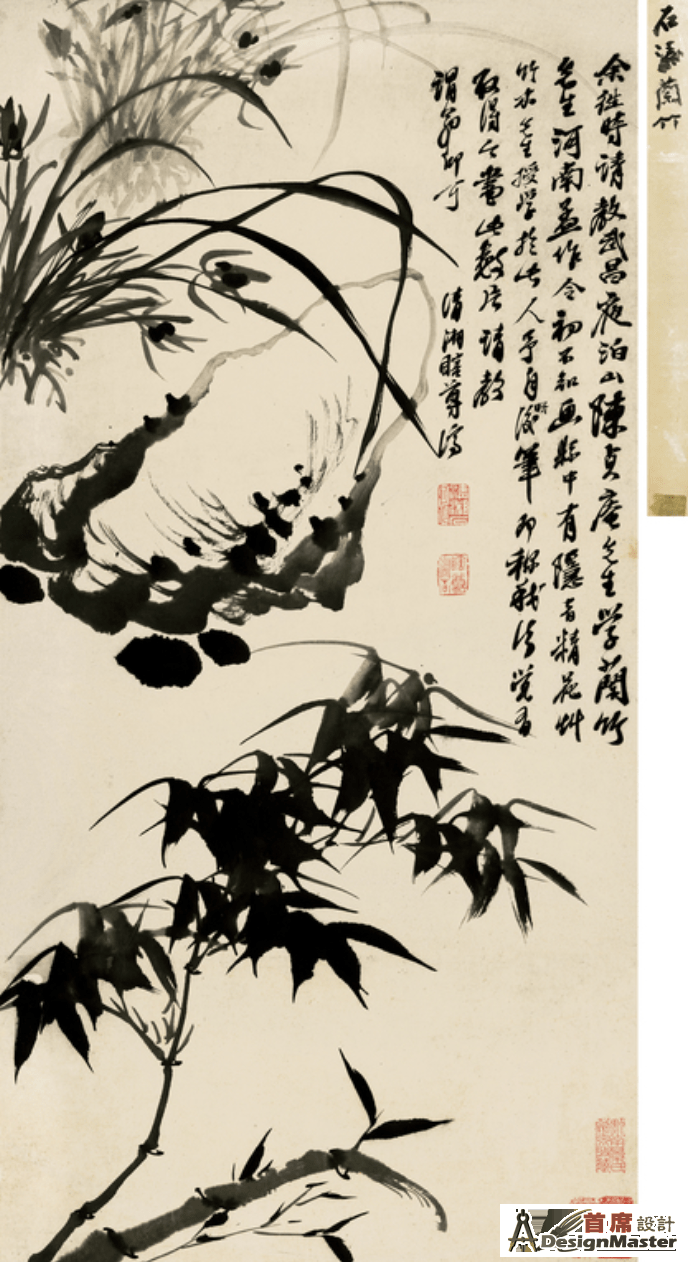 余往時請教武昌夜泊山陳貞庵先生學蘭竹
先生河南孟作令初不知畫縣中有隱者精花艸
竹木先生授學於此人予自後時筆即稱我法覺有
取得之畫此數片請教
謂翁即可
清湘瞎尊濟
石濤蘭竹
首席設計
DesignMaster